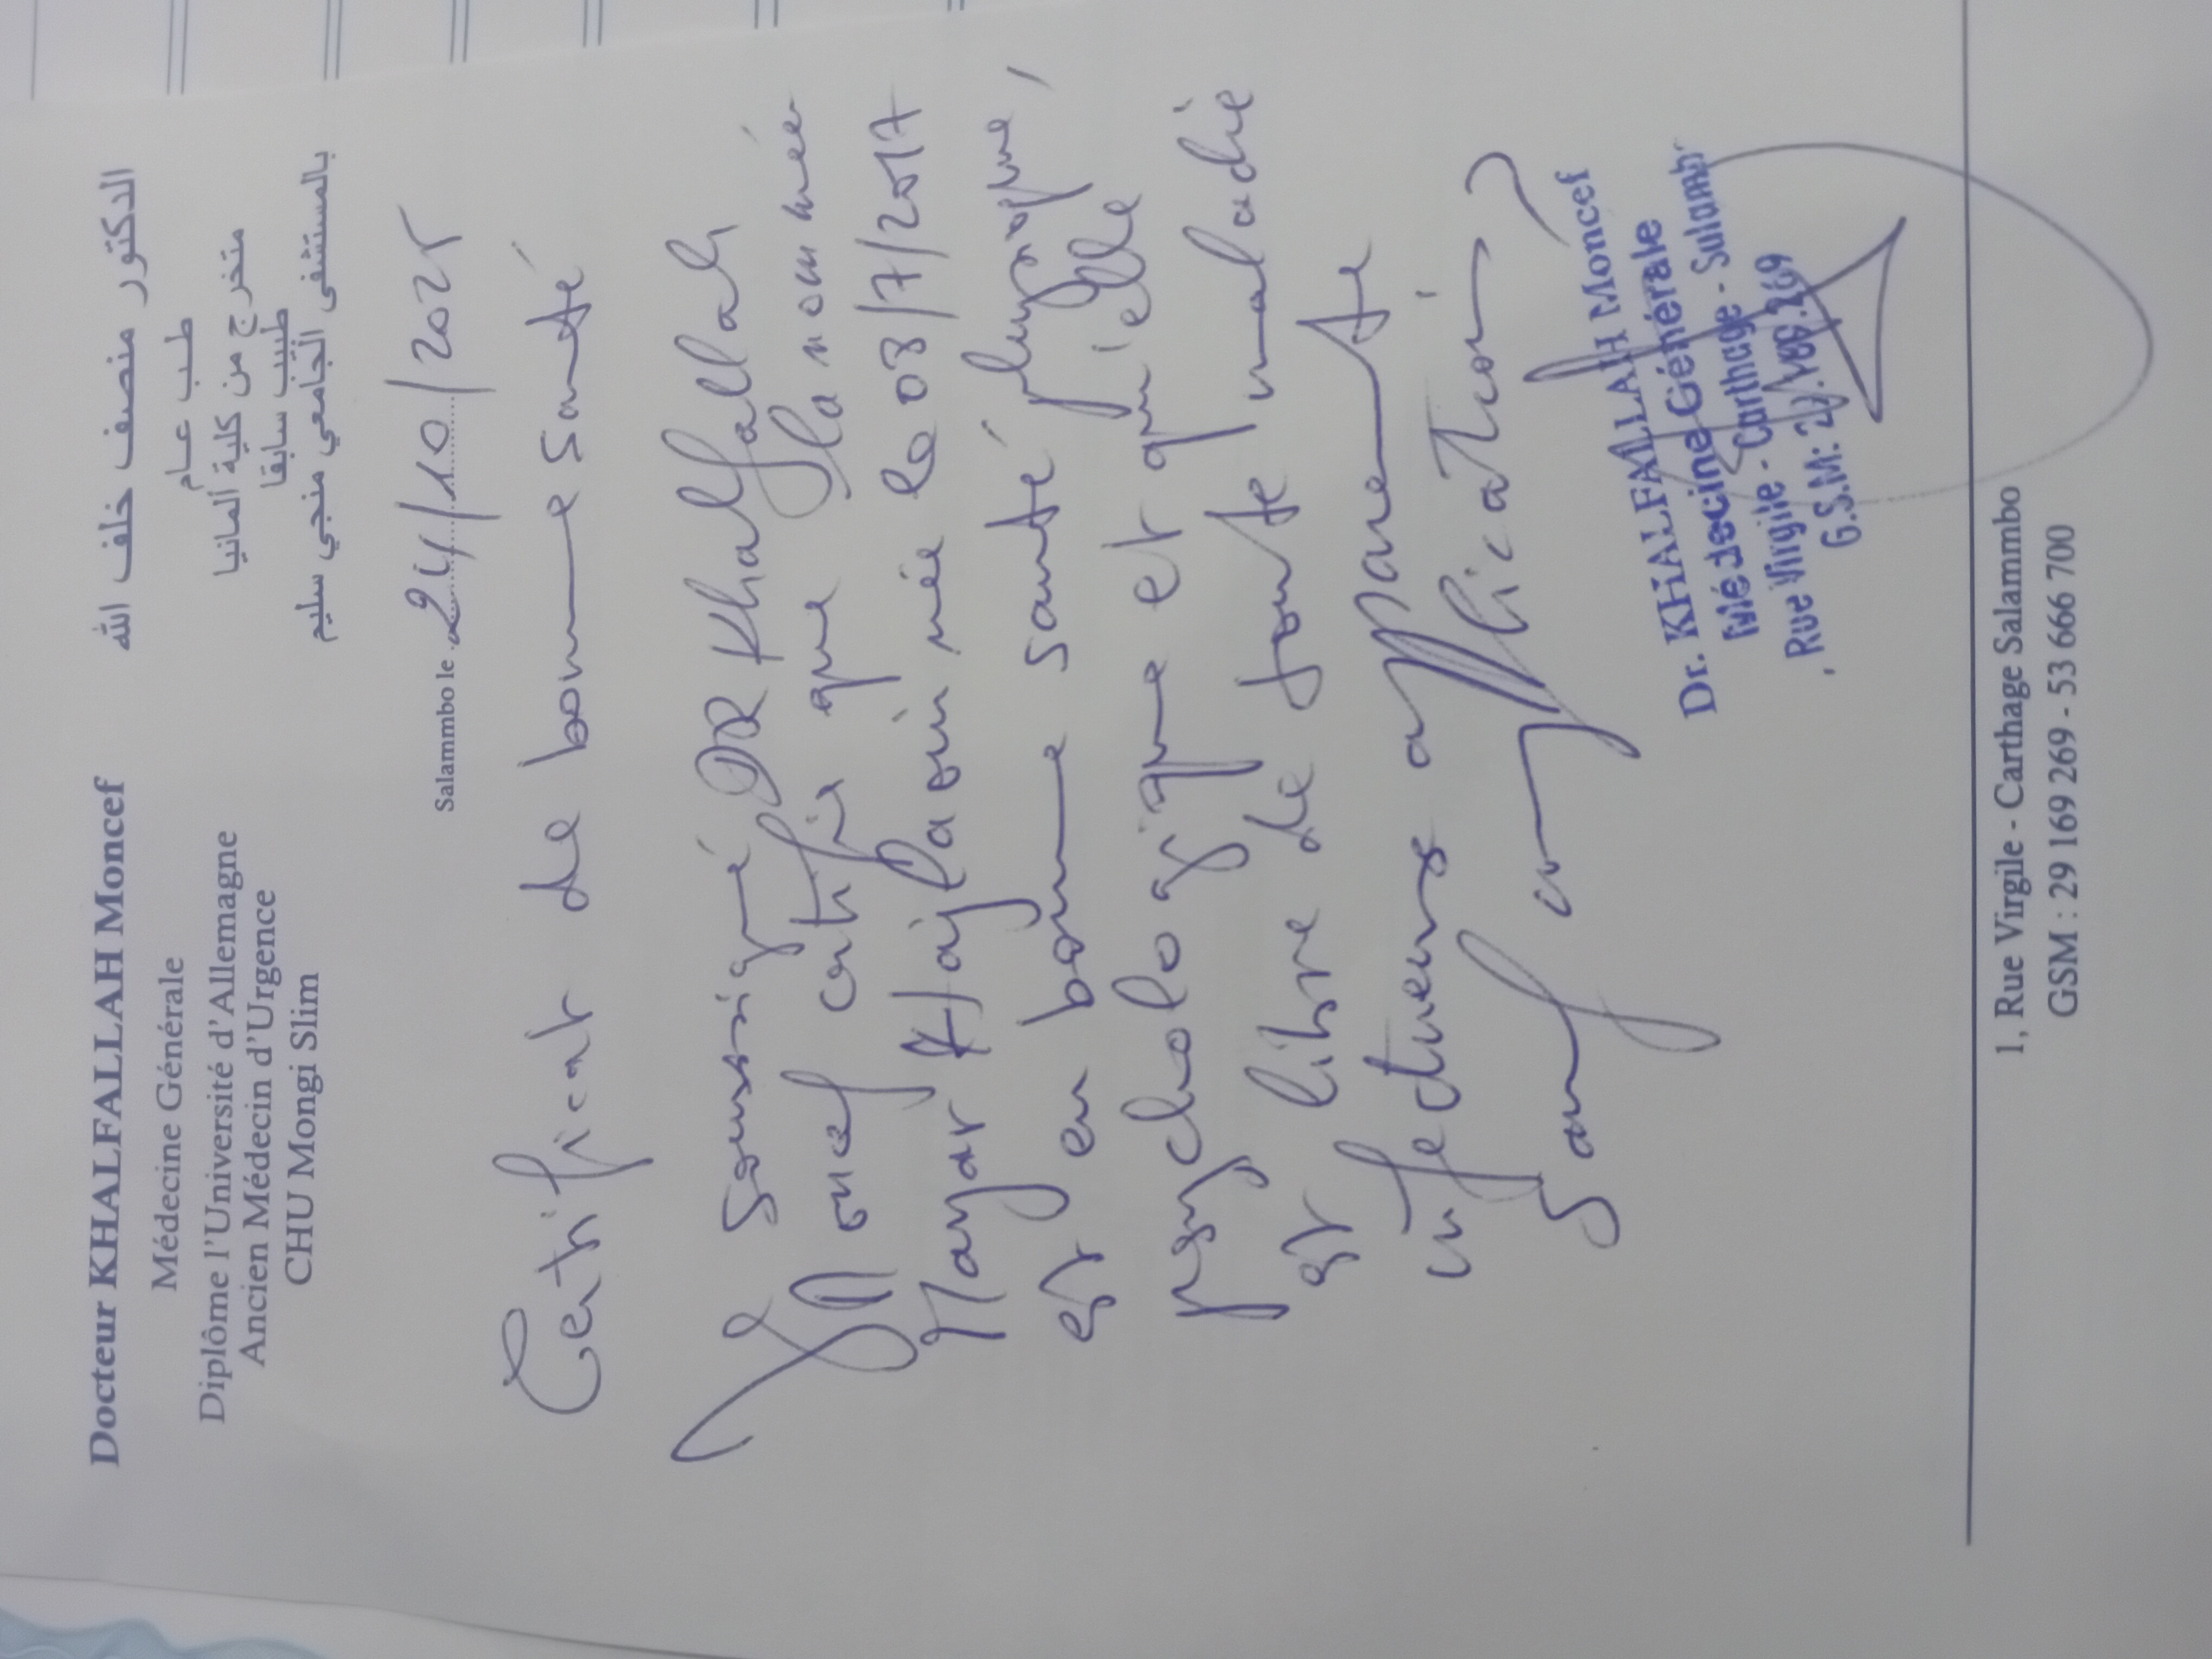 Docteur KHALFALLAH Moncef
Médecine Générale
Diplôme l'Université d'Allemagne
Ancien Médecin d'Urgence
CHU Mongi Slim
الدكتور منصف خلف الله
طب عام
متخرج من كلية ألمانيا
طبيب سابقا
بالمستشفى الجامعي منجي سليم
Salammbo le 24/10/2025
Certificat de bonne santé
Je Soussigné DR Khalfallah
Moncef certifie que la nommée
Mayar Haj née le 03/7/2017
est en bonne santé physique,
psychologique et qu'elle
est libre de toute maladie
infectieuse apparente
Sauf complication
Dr. KHALFALLAH Moncef
Médecine Générale
Rue Virgile - Carthage - Salammb
G.S.M: 29.169.269
1, Rue Virgile - Carthage Salammbo
GSM : 29 169 269 - 53 666 700